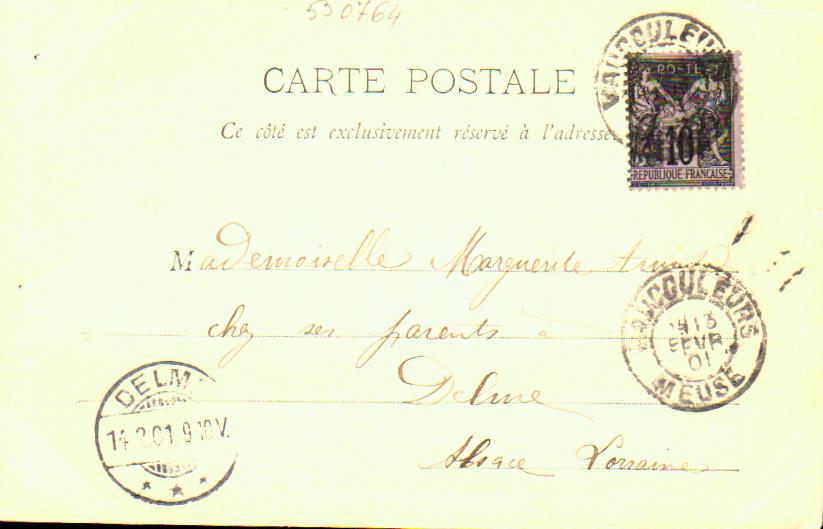 530764
CARTE POSTALE
Ce côté est exclusivement réservé à l'adresse.
VAUCOULEURS
POSTE
10
REPUBLIQUE FRANÇAISE
Mademoiselle Marguerite
chez ses parents à
Delme
Alsace Lorraine
VAUCOULEURS
13
FEVR
01
MEUSE
DELM
14.2.01 9-10V.